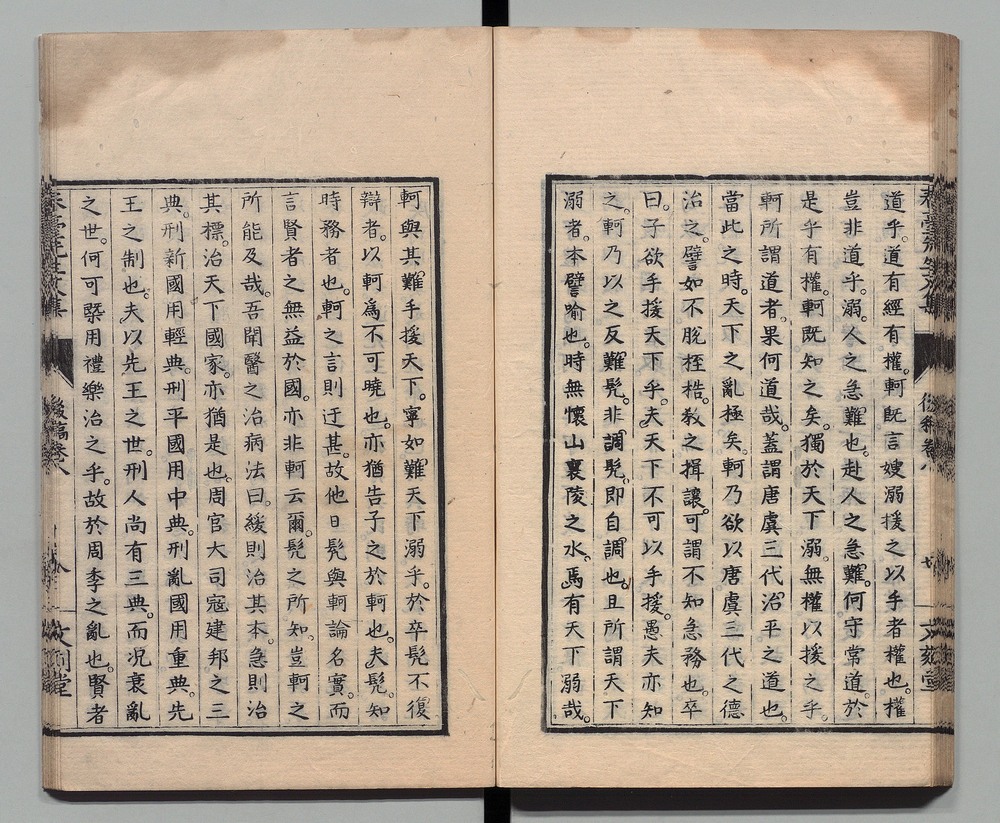 道乎。道有經有權。軻既言嫂溺援之以手者權也。權
豈非道乎。溺人之急難也。赴人之急難。何守常道。於
是乎有權。軻既知之矣。獨於天下溺。無權以援之乎。
軻所謂道者。果何道哉。蓋謂唐虞三代治平之道也。
當此之時。天下之亂極矣。軻乃欲以唐虞三代之德
治之。譬如不脫桎梏。敎之揖讓。可謂不知急務也。卒
曰。子欲手援天下乎。夫天下不可以手援。愚夫亦知
之。軻乃以之反難髡。非調髡。卽自調也。且所謂天下
溺者。本譬喻也。時無懷山襄陵之水。焉有天下溺哉。
軻與其難手援天下。寧如難天下溺乎。於卒髡不復
辯者。以軻爲不可曉也。亦猶告子之於軻也。夫髡。知
時務者也。軻之言則迂甚。故他日髡與軻論名實。而
言賢者之無益於國。亦非軻云爾。髡之所知。豈軻之
所能及哉。吾聞醫之治病法曰。緩則治其本。急則治
其標。治天下國家。亦猶是也。周官大司寇建邦之三
典。刑新國用輕典。刑平國用中典。刑亂國用重典。先
王之制也。夫以先王之世。刑人尚有三典。而況衰亂
之世。何可槩用禮樂治之乎。故於周季之亂也。賢者
後稿卷八